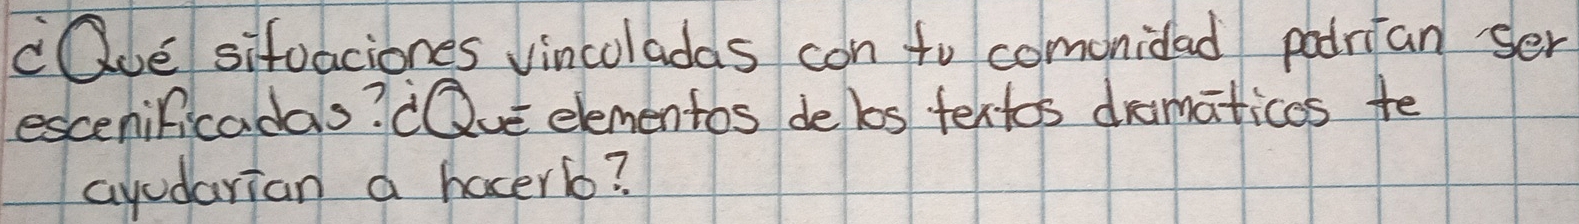 ¿Qué situaciones vinculadas con tu comunidad podrían ser
escenificadas? ¿Qué elementos de los textos dramáticos te
ayudarían a hacerlo?